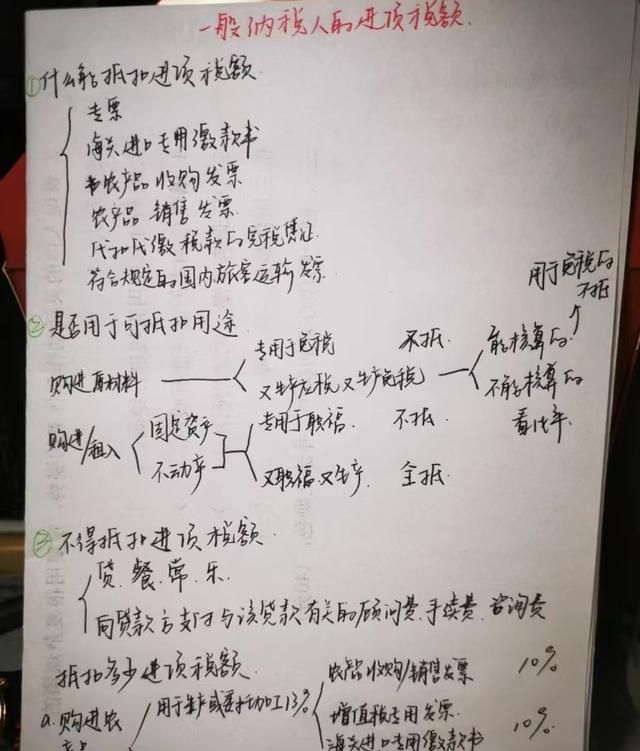 一般纳税人的进项税额
①什么能抵扣进项税额
专票
海关进口专用缴款书
农产品收购发票
农产品销售发票
代扣代缴税款的完税凭证
符合规定的国内旅客运输发票
用于免税的
不抵
②是否用于可抵扣用途
购进原材料
专用于免税 不抵.
又生产应税又生产免税
能核算的
不能核算的
看比率.
购进/租入
固定资产
不动产
专用于职福. 不抵.
又职福.又生产. 全抵.
③不得抵扣进项税额.
贷.餐.常.乐.
向贷款方支付与该贷款有关的顾问费.手续费.咨询费
抵扣多少进项税额.
a.购进农
用于生产或委托加工13%
农产品收购/销售发票 10%
增值税专用发票.
海关进口专用缴款书 10%.